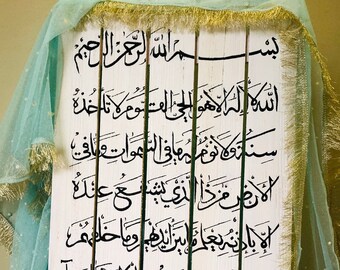 بسم الله الرحمن الرحيم
الله لا إله إلا هو الحي القيوم لا تأخذه
سنة ولا نوم له ما في السموات وما في
الأرض من ذا الذي يشفع عنده
إلا بإذنه يعلم ما بين أيديهم وما خلفهم